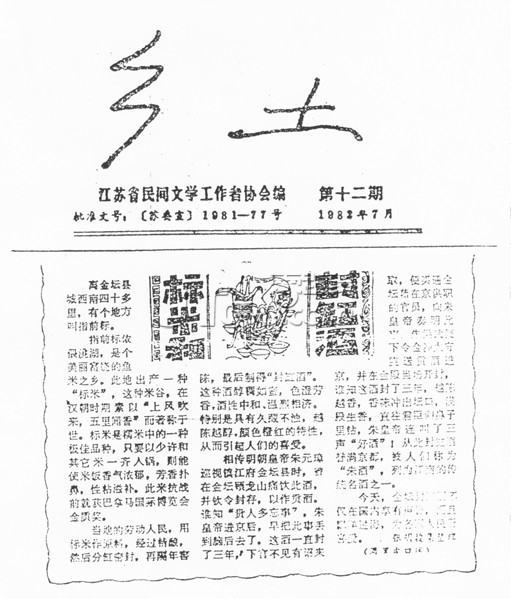 乡土
江苏省民间文学工作者协会编 第十二期
批准文号：〔苏委宣〕1981—77号 1982年7月
离金坛县
城西南四十多
里，有个地方
叫指前标。
指前标依
偎洮湖，是个
美丽富饶的鱼
米之乡。此地出产一种
“标米”，这种米谷，在
汉朝时期素以“上风吹
来，五里闻香”而著称于
世。标米是糯米中的一种
极佳品种，只要以少许和
其它米一齐入锅，则能
使米饭香气浓郁，芳香扑
鼻，性粘滋补。此米抗战
前就获巴拿马国际博览会
金质奖。
当地的劳动人民，用
标米作原料，经过精酿，
然后分缸密封，再隔年窖
标米酒
封缸酒
陈，最后制得“封缸酒”。
这种酒醇稠如蜜，色澄芳
香，酒性中和、温烈相济。
特别是具有久藏不浊，越
陈越醇，颜色橙红的特性，
从而引起人们的喜爱。
相传明朝皇帝朱元璋
巡视镇江府金坛县时，曾
在金坛顾龙山痛饮此酒，
并钦令封存，以作贡酒。
谁知“贵人多忘事”，朱
皇帝进京后，早把此事丢
到脑后去了。这酒一直封
了三年，下官不见有诏来
取，便英遣金
坛籍在京供职
的官员，向朱
皇帝奏明
下令金
贡酒进
京，并在金殿当场开封，
谁知这酒封了三年，越陈
越香，香味冲出坛口，
朱皇帝连叫了三
声“好酒”！从此封缸酒
誉满京都，被人们称为
“朱酒”，列为江南的传
统名酒之一。
今天，金坛封缸酒
仅在国内享有